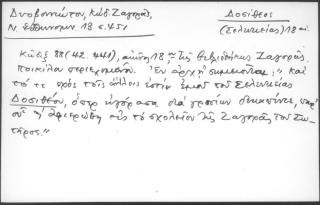 Δυοβουνιώτου, Κώδ. Ζαγορᾶς,
Ν. Ἑλληνομν. 13 σ. 451
Δοσίθεος
(Σελευκείας) 18 αἰ.
Κώδιξ 88 (42. 441), αἰῶνος 18ου τῆς βιβλιοθήκης Ζαγορᾶς,
ποικίλου περιεχομένου. Ἐν ἀρχῇ σημειοῦται: "Καὶ
τό τε πρὸς τοῖς ἄλλοις ἐστὶν ἐμοῦ τοῦ Σελευκείας
Δοσιθέου, ὅπερ ἠγόρασα διὰ γροσίων δεκαπέντε, παρ'
οὗ καὶ ἀφιερώθη εἰς τὸ σχολεῖον τῆς Ζαγορᾶς τοῦ Σω-
τῆρος."